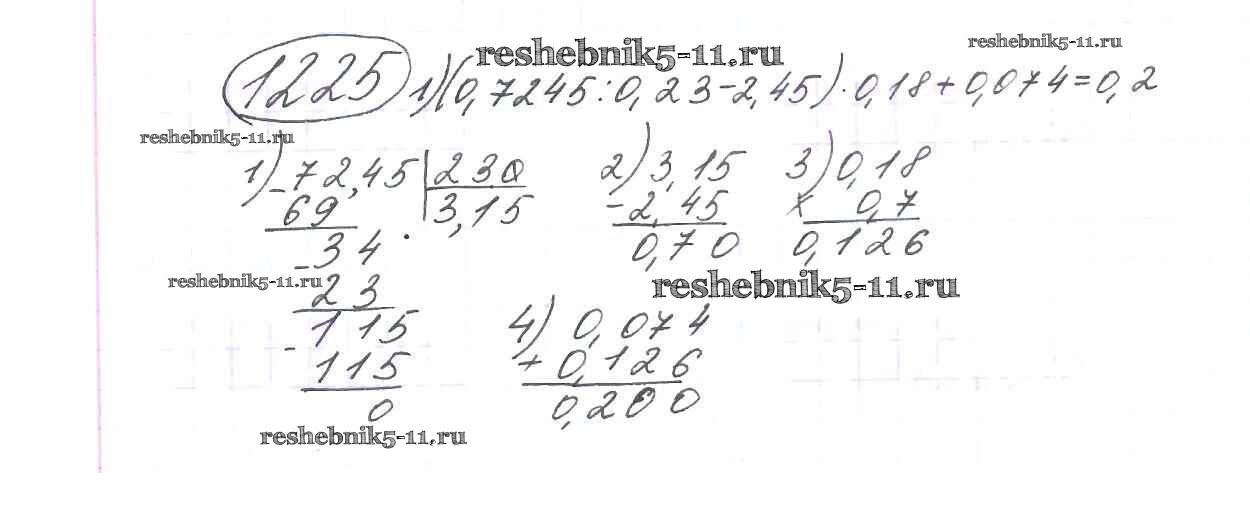 reshebnik5-11.ru
reshebnik5-11.ru
1225 1) (0,7245:0,23-2,45)·0,18+0,074=0,2
reshebnik5-11.ru
1) -72,45 | 230 2) 3,15 3) 0,18
69 3,15 -2,45 x 0,7
-34 0,70 0,126
reshebnik5-11.ru reshebnik5-11.ru
23
-115 4) 0,074
115 +0,126
0 0,200
reshebnik5-11.ru